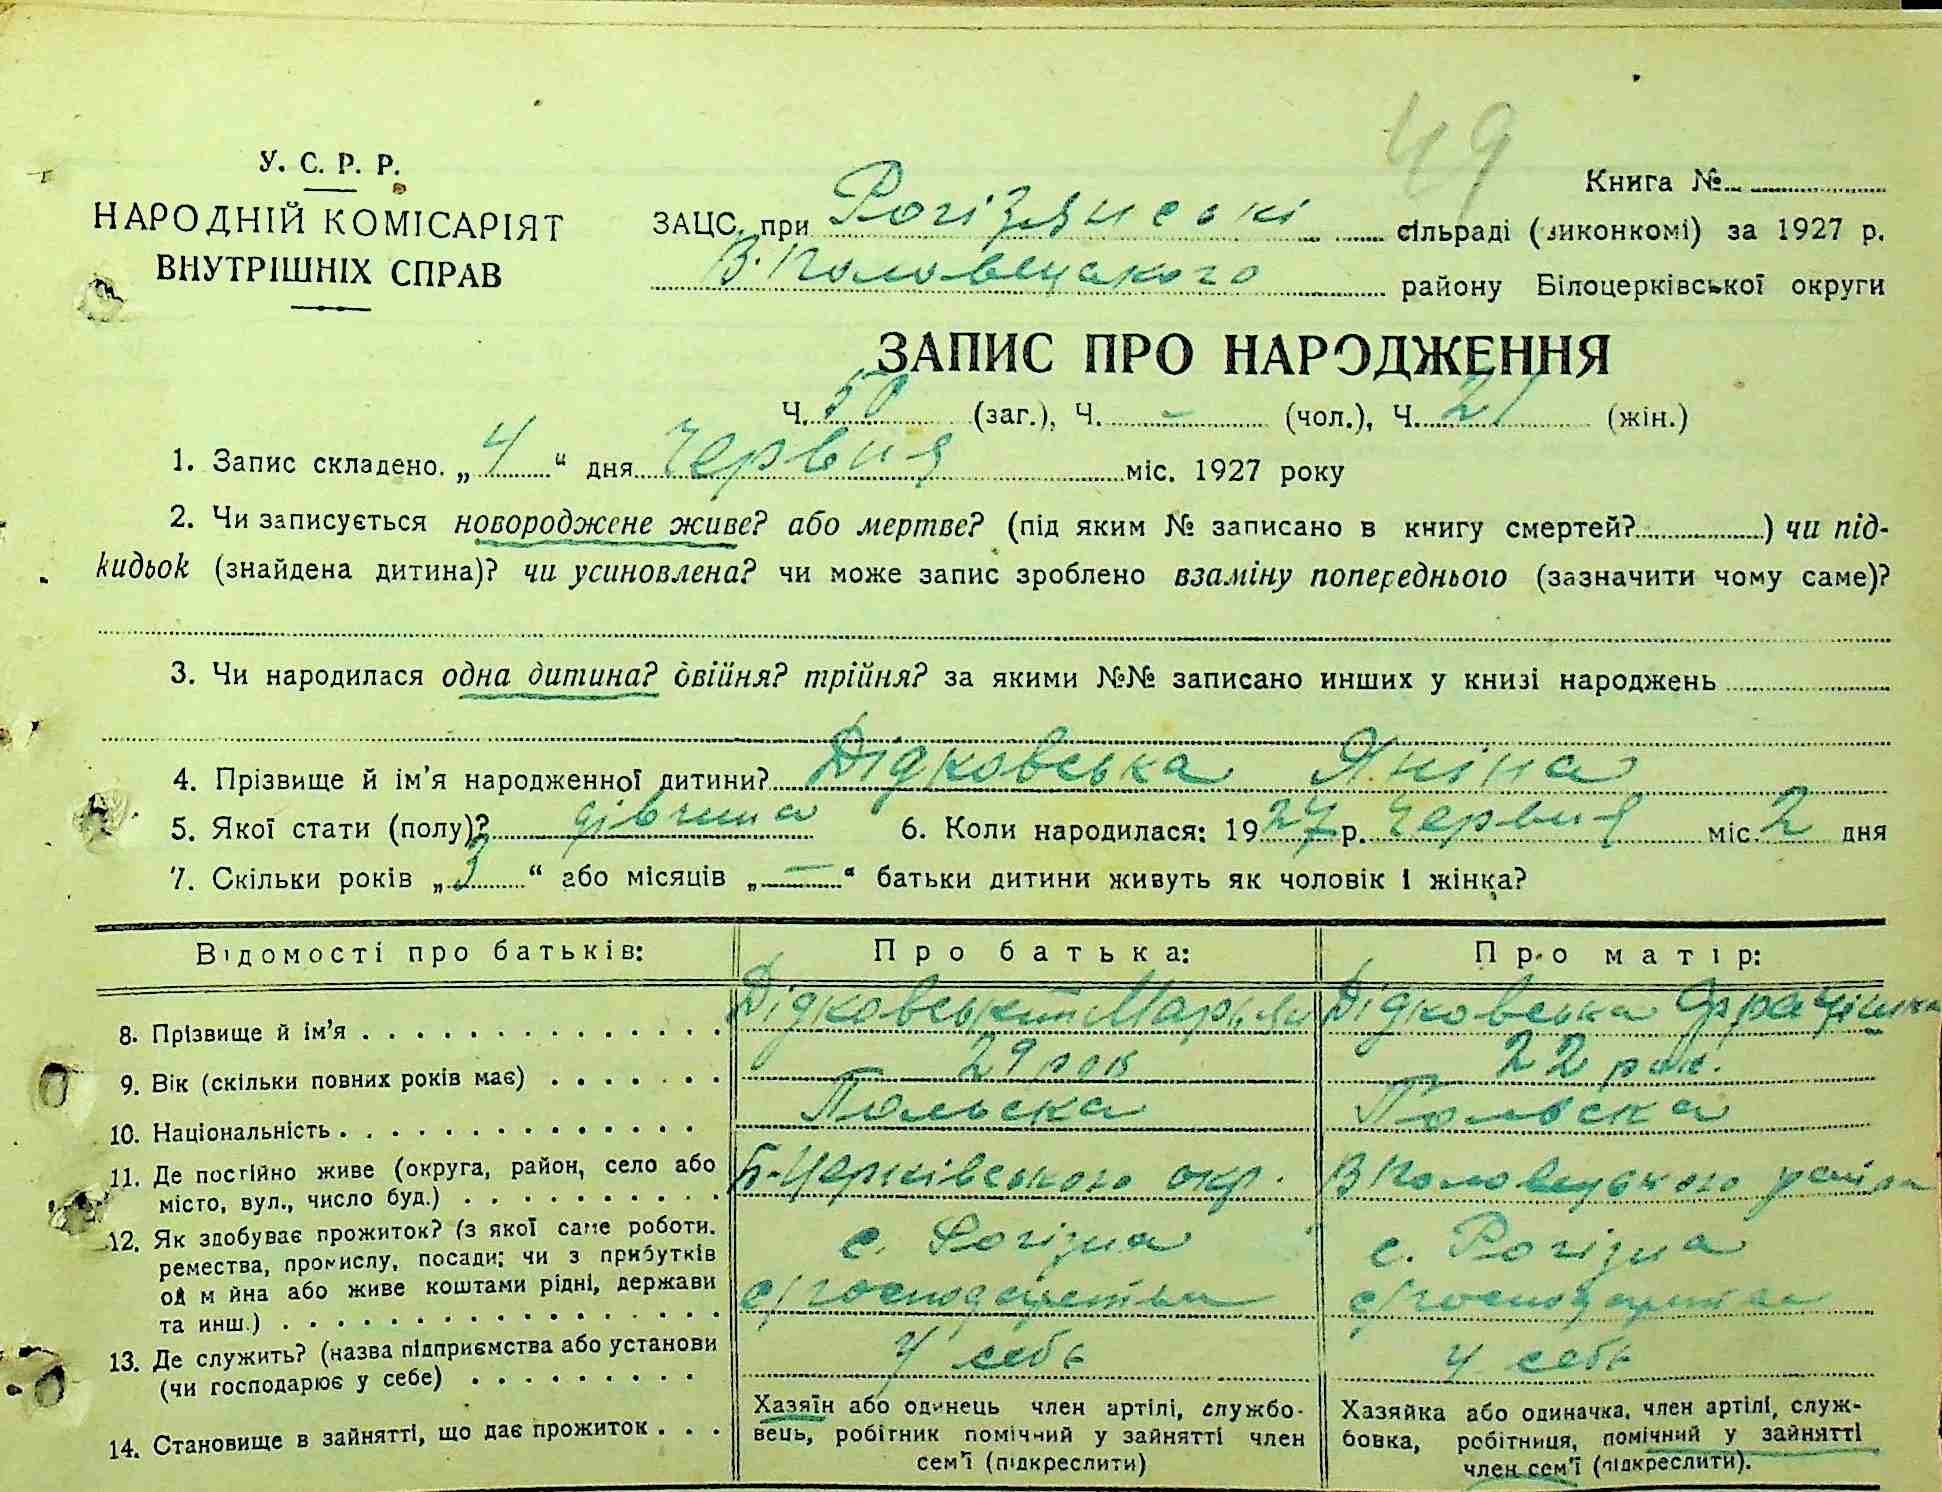 49
У. С. Р. Р.
НАРОДНІЙ КОМІСАРІЯТ
ВНУТРІШНІХ СПРАВ
Книга №
ЗАЦС. при Рогізянські сільраді (виконкомі) за 1927 р.
В. Половецького району Білоцерківської округи
ЗАПИС ПРО НАРОДЖЕННЯ
Ч. 50 (заг.), Ч. – (чол.), Ч. 21 (жін.)
1. Запис складено. „4“ дня Червня міс. 1927 року
2. Чи записується новороджене живе? або мертве? (під яким № записано в книгу смертей?) чи під-
кидьок (знайдена дитина)? чи усиновлена? чи може запис зроблено взаміну попереднього (зазначити чому саме)?
3. Чи народилася одна дитина? двійня? трійня? за якими №№ записано инших у книзі народжень
4. Прізвище й ім’я народженної дитини? Дідковська Яніна
5. Якої стати (полу)? дівчина 6. Коли народилася: 1927 р. Червня міс. 2 дня
7. Скільки років „3“ або місяців „—“ батьки дитини живуть як чоловік і жінка?
Відомості про батьків: Про батька: Про матір:
8. Прізвище й ім’я Дідковський Марьян Дідковська Францішка
9. Вік (скільки повних років має) 29 рок 22 рок.
10. Національність Польска Польска
11. Де постійно живе (округа, район, село або Б-Церківського окр. В Половецького район
місто, вул., число буд.)
12. Як здобуває прожиток? (з якої саме роботи, с. Рогізна с. Рогізна
ремества, промислу, посади; чи з прибутків
од майна або живе коштами рідні, держави с/господарства с/господарства
та инш.)
13. Де служить? (назва підприємства або установи У себе У себе
(чи господарює у себе)
14. Становище в зайнятті, що дає прожиток
Хазяїн або одинець член артілі, службо-
вець, робітник помічний у зайнятті член
сем’ї (підкреслити)
Хазяйка або одиначка, член артілі, служ-
бовка, робітниця, помічний у зайнятті
член сем’ї (підкреслити).